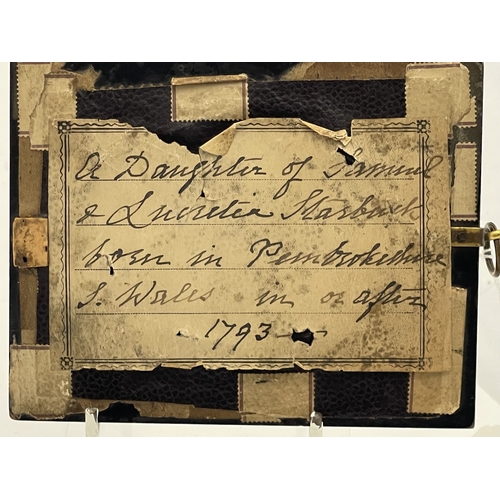 A Daughter of Samuel
& Lucretia Starbuck
born in Pembrokeshire
S. Wales in or after
- 1793 -